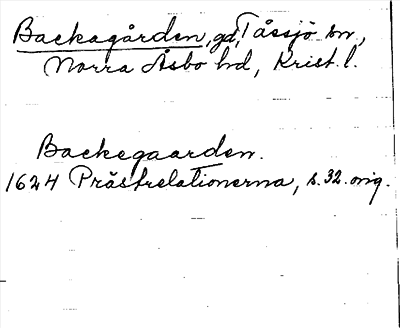 Backagården, gd, Tåssjö sn,
Norra Åsbo hd, Krist. l.
Backegaarden.
1624 Prästrelationerna, s. 32. orig.